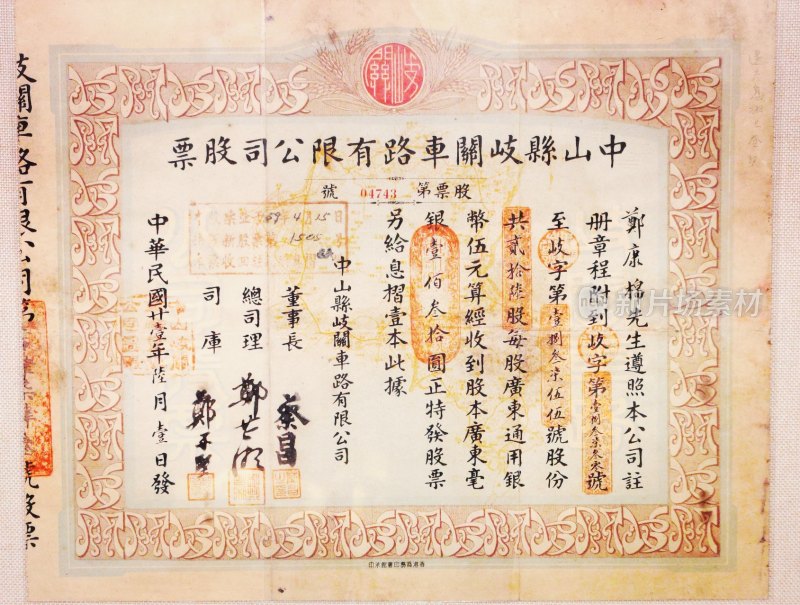 岐關
中山縣岐關車路有限公司股票
股票第 04743 號
鄭康棉先生遵照本公司註
册章程附到岐字第壹捌叁柒叁零號
至歧字第壹捌叁柒伍伍號股份
共貳拾陸股每股廣東通用銀
幣伍元算經收到股本廣東毫
銀壹佰叁拾圓正特發股票
另給息摺壹本此據
中山縣岐關車路有限公司
董事長 蔡昌
總司理 鄭芷湘
司庫 鄭
中華民國廿壹年陸月壹日發
4月15日
1505
岐關車路有限公司第
號股票
新片场素材